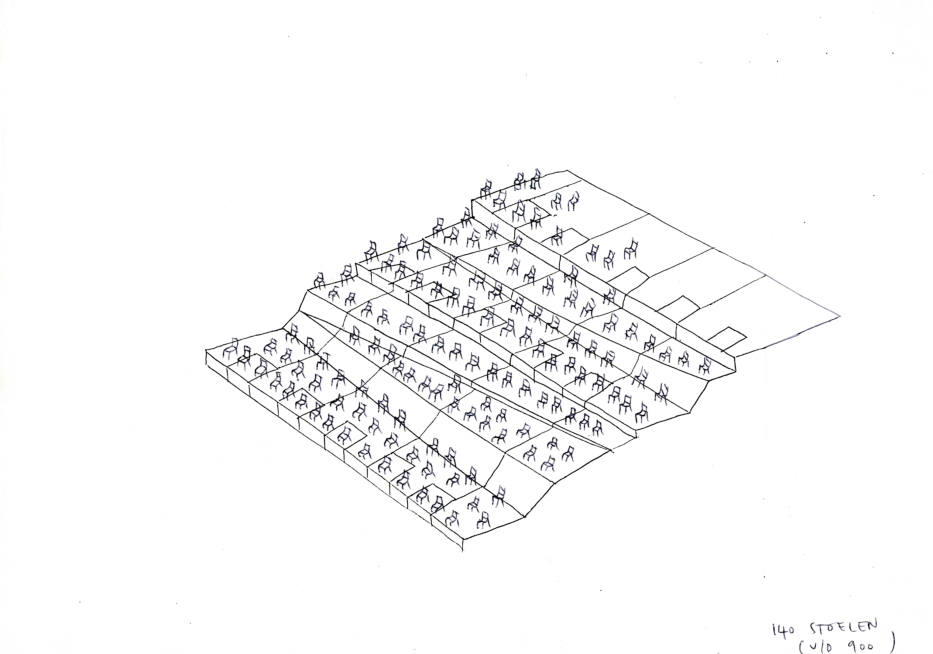 140 STOELEN
(V/D 900)